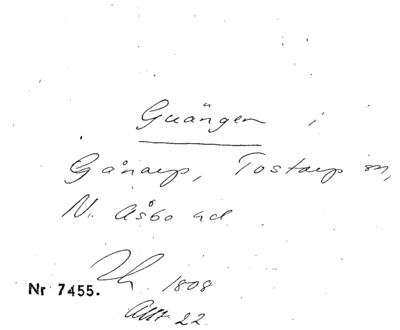 Guängen i
Gånarp, Tostarp sn,
N. Åsbo hd
1808
Nr 7455.
Akt 22.